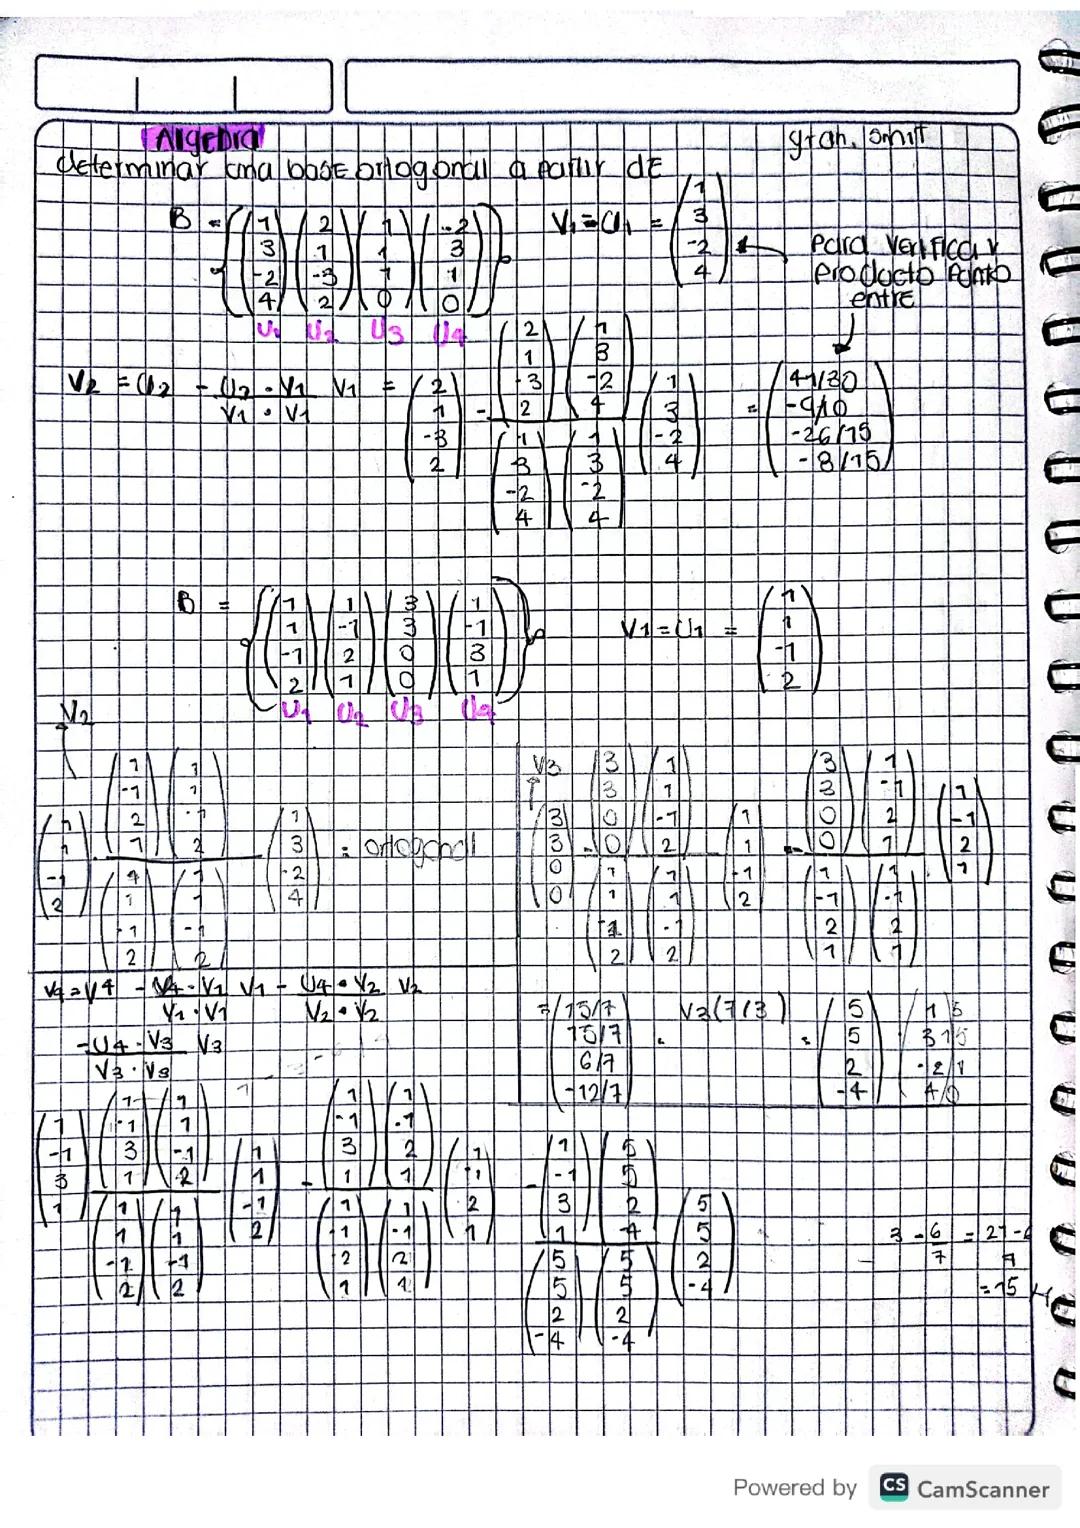 Algebra
gran. smit
determinar una base ortogonal a partir de
B = { (1 3 -2 4) (2 1 -3 2) (1 1 1 0) (-2 3 1 0) }
U1 U2 U3 U4
V1 = U1 = (1 3 -2 4)
Para verificar
producto Punto
entre
V2 = U2 - U2 · V1 / V1 · V1 V1 = (2 1 -3 2) - (2 1 -3 2) (1 3 -2 4) / (1 3 -2 4) (1 3 -2 4) (1 3 -2 4) = (41/30 -9/10 -26/15 -8/15)
B = { (1 1 -1 2) (1 -1 2 1) (3 3 0 0) (1 -1 3 1) }
U1 U2 U3 U4
V1 = U1 = (1 1 -1 2)
V2
(1 1 -1 2) - (1 -1 2 1) (1 1 -1 2) / (1 1 -1 2) (1 1 -1 2) (1 3 -2 4) = ortogonal
V3
(3 3 0 0) - (3 3 0 0) (1 1 -1 2) / (1 1 -1 2) (1 1 -1 2) (1 1 -1 2) - (3 3 0 0) (1 -1 2 1) / (1 -1 2 1) (1 -1 2 1) (1 -1 2 1)
= (15/7 15/7 6/7 -12/7) · V3 (7/3) = (5 5 2 -4)
V4 = V4 - V4 · V1 / V1 · V1 V1 - U4 · V2 / V2 · V2 V2
- U4 · V3 / V3 · V3 V3
(1 -1 3 1) (1 -1 3 1) (1 1 -1 2) / (1 1 -1 2) (1 1 -1 2) (1 1 -1 2) - (1 -1 3 1) (1 -1 2 1) / (1 -1 2 1) (1 -1 2 1) (1 -1 2 1) - (1 -1 3 1) (5 5 2 -4) / (5 5 2 -4) (5 5 2 -4) (5 5 2 -4)
3 - 6/7 = 21-6
7
= 15
Powered by CS CamScanner